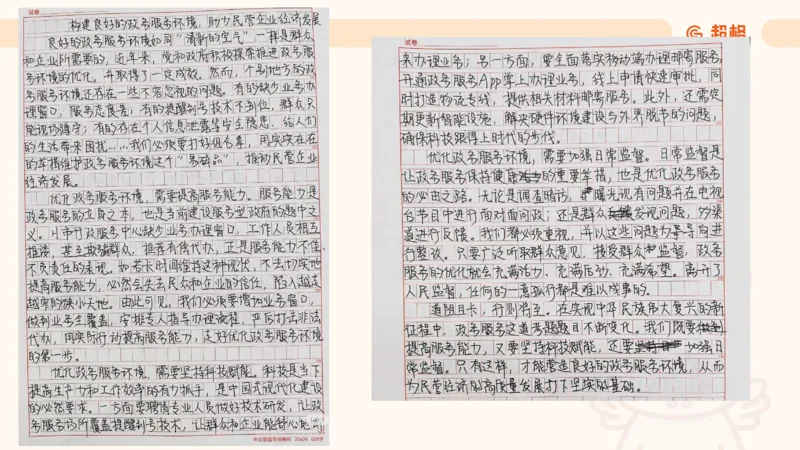 试卷
构建良好的政务服务环境，助力民营企业经济发展
良好的政务服务环境如同“清新的空气”一样是群众
和企业所需要的，近年来，党和政府积极探索推进政务服
务环境的优化，并取得了一定成效。然而，个别地方的政
务服务环境还存在一些不容忽视的问题。有的缺少业务办
理窗口，服务态度差；有的提醒叫号技术不到位，群众只
能现场蹲守；有的存在个人信息泄露等安全隐患，给人们
的生活带来困扰……我们必须要打好组合拳，用实实在在
的举措维护政务服务环境这个“易碎品”，推动民营企业
经济发展。
优化政务服务环境，需要提高服务能力。服务能力是
政务服务的立身之本，也是当前建设服务型政府的题中之
义。H市行政服务中心缺少业务办理窗口，工作人员相互
推诿，甚至欺骗群众，推荐有偿代办，正是服务能力不佳、
不负责任的表现。如若长时间维持这种现状，不去切实地
提高服务能力，必然会失去民众和企业的信任，陷入越走
越窄的狭小天地。由此可见，我们必须要增加业务窗口，
做到业务全覆盖，安排专人指导办理流程，严厉打击非法
代办，用实际行动提高服务能力，走好优化政务服务环境
的第一步。
优化政务服务环境，需要坚持科技赋能。科技是当下
提高生产力和工作效率的有力抓手，是中国式现代化建设
的必然要求。一方面要聘请专业人员做好技术研发，让政
务服务场所覆盖提醒叫号技术，让群众和企业能舒心地
试卷
来办理业务；另一方面，要全面落实移动端办理邮寄服务，
开通政务服务App掌上办理业务，线上申请快速审批，同
时打造物流专线，提供相关材料邮寄服务。此外，还需定
期更新智能设施，解决硬件环境建设与外界脱节的问题，
确保科技跟得上时代的步伐。
优化政务服务环境，需要加强日常监督。日常监督是
让政务服务保持健康的重要举措，也是优化政务服务
的必由之路。无论是调查暗访，曝光现有问题并在电视
台节目中进行面对面问政；还是群众发现问题，多渠
道进行反馈。我们都必须重视，并以这些问题为导向进
行整改。只要广泛听取群众意见，接受群众监督，政务
服务的优化就会充满活力、充满活动、充满希望。离开了
人民监督，任何的一意孤行都是难以成事的。
道阻且长，行则将至。在实现中华民族伟大复兴的新
征程中，政务服务这道考题题目不断变化。我们既要
提高服务能力，又要坚持科技赋能，还要加强日
常监督。只有这样，才能营造良好的政务服务环境，从而
为民营经济的高质量发展打下坚实的基础。